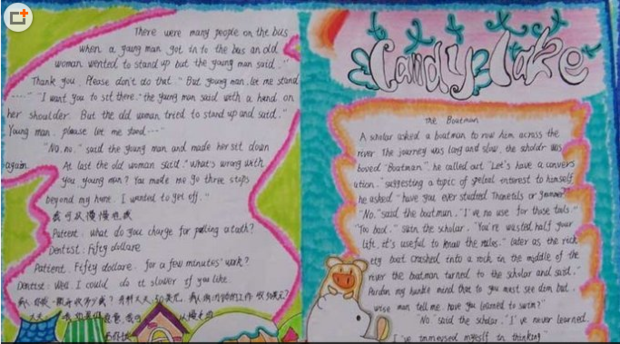 There were many people on the bus
when a young man got in to the bas an old
woman wented to stand up but the young man said.."
Thank you. Please don't do that." But young man, let me stand
-----" "I want you to sit there." the young man said with a hand on
her shoulder. But the old woman tried to stand up and said."
Young man. please let me stand ----"
"No. no." said the young man and made her set down
again. At last the old woman said." What's wrong with
you young man? You made me go three stops
beyond my home. I wanted to get off."
我可以慢慢地拔
Patient: what do you charge for pulling a tooth?
Dentist: Fifty dollars.
Patient: Fifty dollars. for a few minutes' work?
Dentist: Well I could do it slower if you like.
Candy Take
the Boatman
A scholar asked a boatman to row him across the
river The journey was long and slow. the scholar was
bored "Boatman". he called out "Let's have a convers
ation." suggesting a topic of interest to himself
he asked "have you ever studied or
"No." said the boatman. "I've no use for those
"Too bad." the scholar. "You're wasted half your
life. it's useful to know the rules." later as the rick
ety boat crashed into a rock in the middle of the
river the boatman turned to the scholar and said."
Pardon my mind that to you must see dom but
wise man tell me. have you learned to swim?"
"No" said the scholar. "I've never learned.
I've immersed myself in thinking"